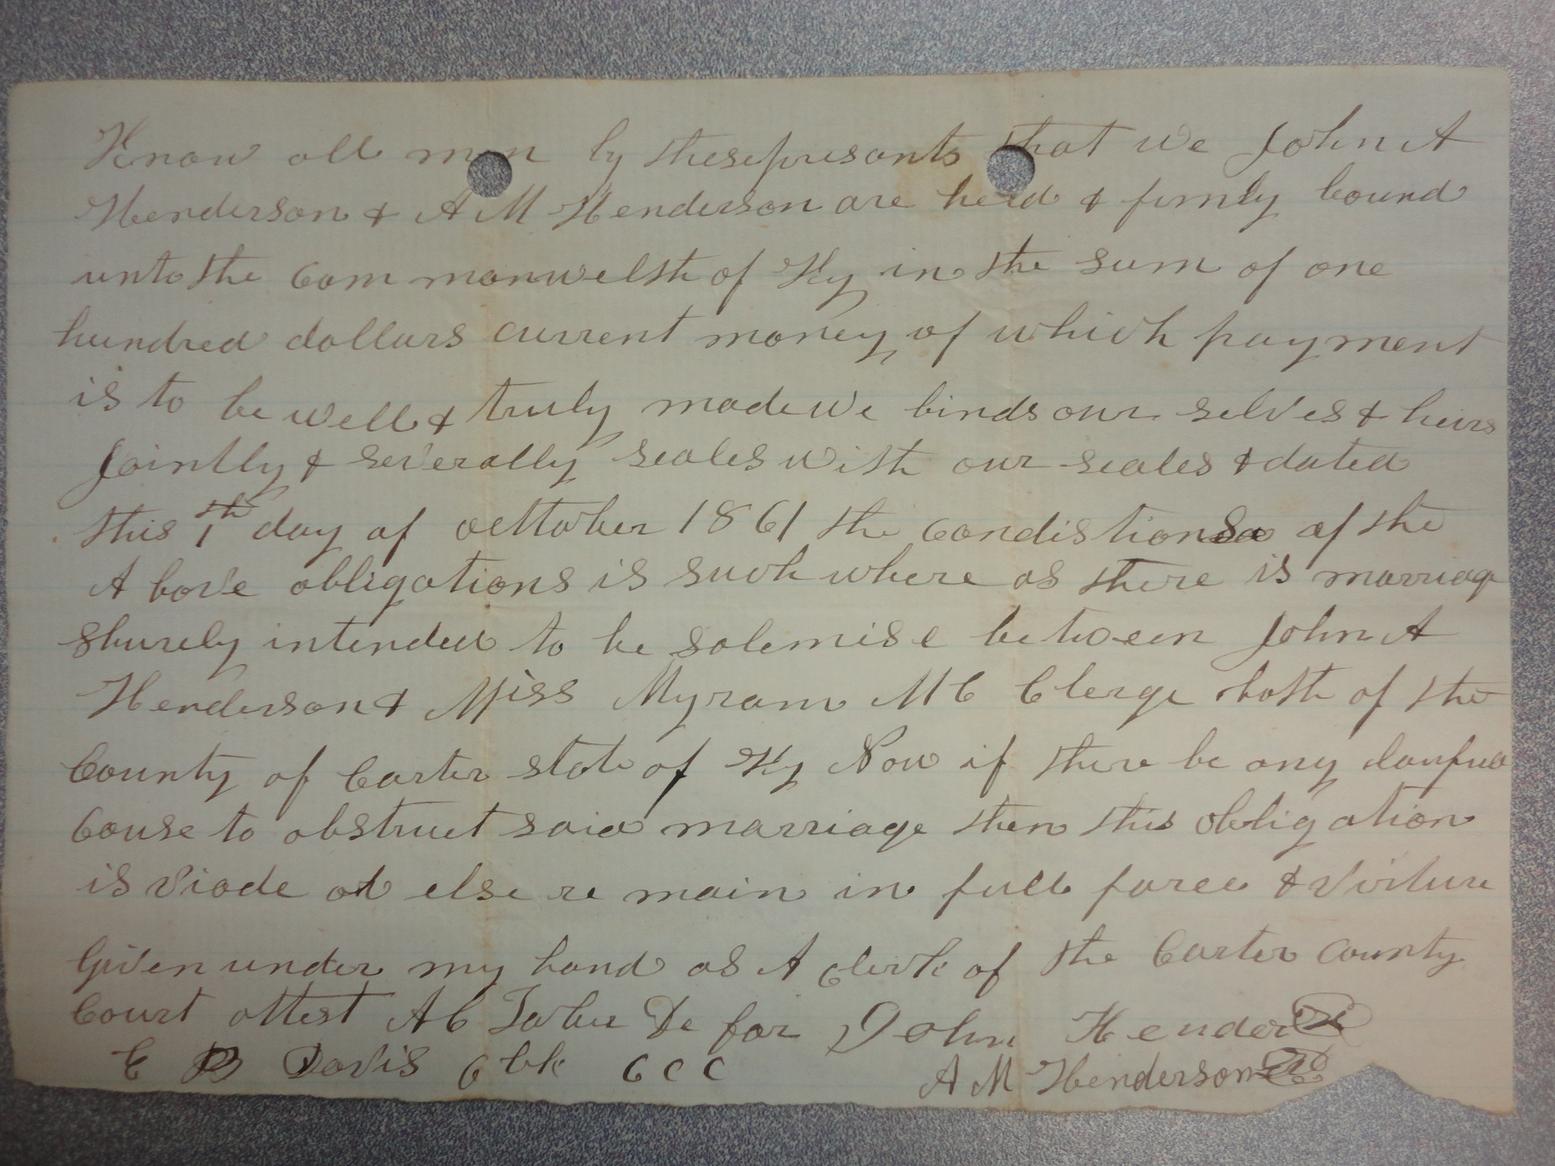 Know all men by these presants that we John A
Henderson & A M Henderson are held & firmly bound
unto the Com monwelth of Ky in the sum of one
hundred dollars current money of which payment
is to be well & truly made we binds our selves & heirs
Jointly & severally seales with our seales & dated
this 1th day of octtober 1861 the condistions of the
A bove obligations is such where as there is marriag
shurely intended to be solemise between John A
Henderson & Miss Myram MC Clerge both of the
County of Carter state of Ky Now if there be any lawful
Couse to obstruct said marriage then this obligation
is viode or else re main in full force & virture
Given under my hand as A clerk of the Carter County
Court attest A C Taber Dc for John Henderson
E B Davis Clk C C C A M Henderson